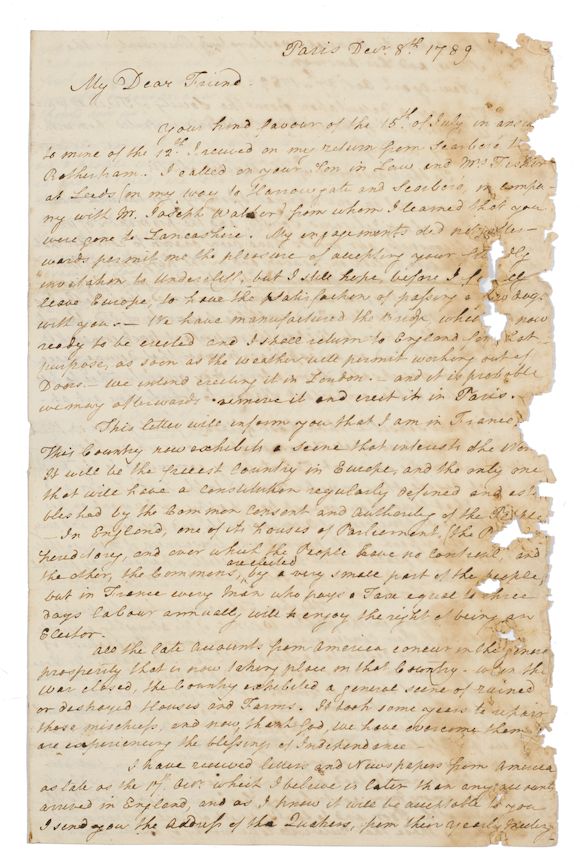 Paris Decr. 8th 1789
My Dear Friend
Your kind favour of the 15th of July in answ
to mine of the 12th I received on my return from Scarboro to
Rotherham. I called on your Son in Law and Mrs
at Leeds (on my way to Harrowgate and Scarboro, in compa-
ny with Mr. Joseph Walker) from whom I learned that you
were gone to Lancashire. My engagements did not after-
wards permit me the pleasure of accepting your
invitation to but I still hope, before I
leave Europe, to have the satisfaction of passing a few days
with you. — We have manufactured the Bridge which now
ready to be erected and I shall return to England for that
purpose, as soon as the weather will permit working out of
Doors — we intend erecting it in London — and it is probable
we may afterwards remove it and erect it in Paris.
This letter will inform you that I am in France.
This Country now exhibits a scene that interests the Wor
It will be the freest Country in Europe, and the only one
that will have a constitution regularly defined and esta
blished by the Common Consent and authority of the People
— In England, one of its houses of Parliament, (the P
hereditary, and over which the People have no controul, and
the other, the Commons, are elected by a very small part of the people,
but in France every man who pays a Tax equal to three
days labour annually will enjoy the right of being an
Elector.
All the late accounts from America concur in the general
prosperity that is now taking place in that Country. When the
war closed, the Country exhibited a general scene of ruined
or destroyed Houses and Farms. It took some years to repair
those mischiefs, and now, thank God we have overcome them
are experiencing the blessings of Independence —
I have received letters and Newspapers from America
as late as the Octr. which I believe is later than any accounts
arrived in England, and as I know it will be acceptable to you
I send you the Address of the Quakers, from their yearly meeting